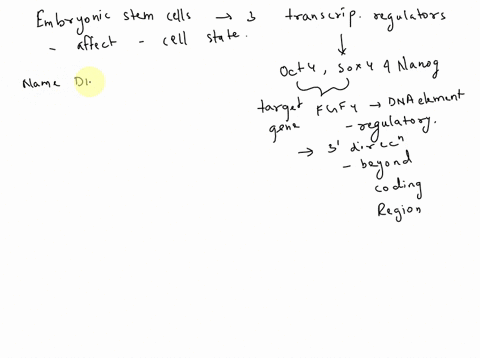 Embryonic stem cells → 3 transcrip. regulators
- affect - cell state.
Oct 4, Sox 4 & Nanog
Name DI.
target gene FGF4 → DNA element
- regulatory.
→ 3' direcⁿ
- beyond
coding
Region